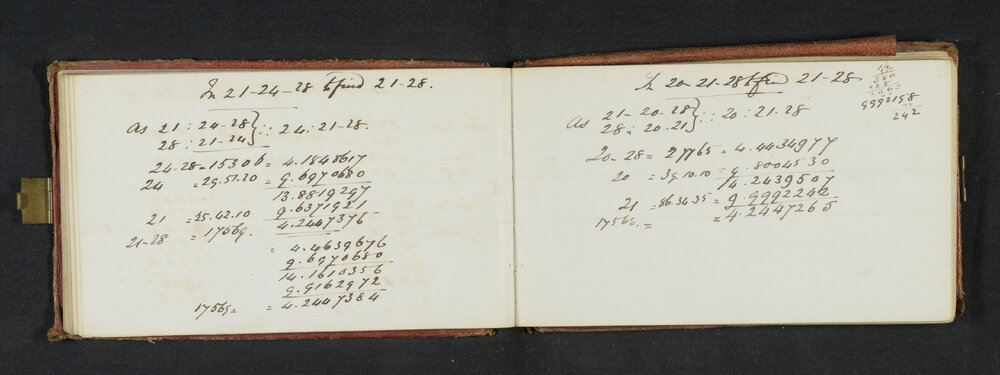 In 21-24-28 to find 21-28.
As 21 : 24-28 } :: 24 : 21-28.
28 : 21-24 }
24-28 = 15306 = 4.1848617
24 = 29.51.20 = 9.6970680
13.8819297
21 = 25.42.10 9.6371921
21-28 = 17569. 4.2447376
= 4.4639676
9.6970680
14.1610356
9.9162972
17569 = = 4.2447384
In 20-21-28 to find 21-28
As 21-20-28 } :: 20 : 21-28
28 : 20-21 }
20-28 = 27765 = 4.4434977
20 = 39.10.10 = 9.8004530
14.2439507
21 = 86.34.35 = 9.9992242
17569. = = 4.2447265
9992198
242